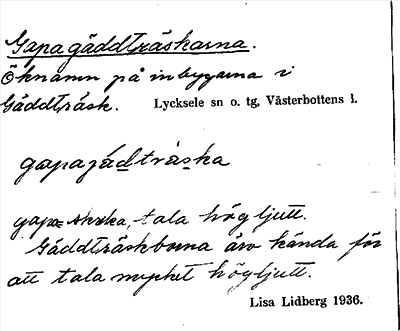 Gapagäddträskarna.
Öknamn på inbygarna i
Gäddträsk. Lycksele sn o. tg, Västerbottens l.
gapagädträska
gapa= skrika, tala högljutt.
Gäddträskborna äro kända för
att tala mycket högljutt.
Lisa Lidberg 1936.